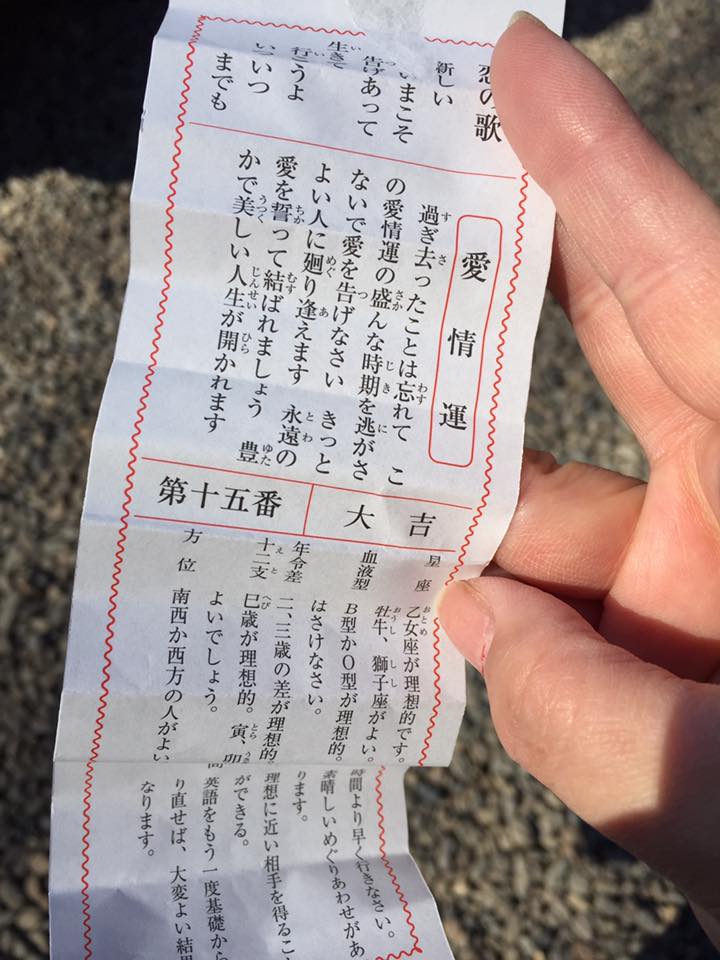 恋の歌
新しい
いまこそ
告げあって
生きて
行こうよ
いつ
までも
愛情運
過ぎ去ったことは忘れて こ
の愛情運の盛んな時期を逃がさ
ないで愛を告げなさい きっと
よい人に廻り逢えます 永遠の
愛を誓って結ばれましょう 豊
かで美しい人生が開かれます
第十五番 大吉
星座 乙女座が理想的です。
牡牛、獅子座がよい。
血液型 B型かO型が理想的。
はさけなさい。
年令差 二、三歳の差が理想的。
十二支 巳歳が理想的。寅、卯
よいでしょう。
方位 南西か西方の人がよい
時間より早く行きなさい。
素晴しいめぐりあわせがあ
ります。
理想に近い相手を得るこ
ができる。
英語をもう一度基礎から
り直せば、大変よい結果
なります。